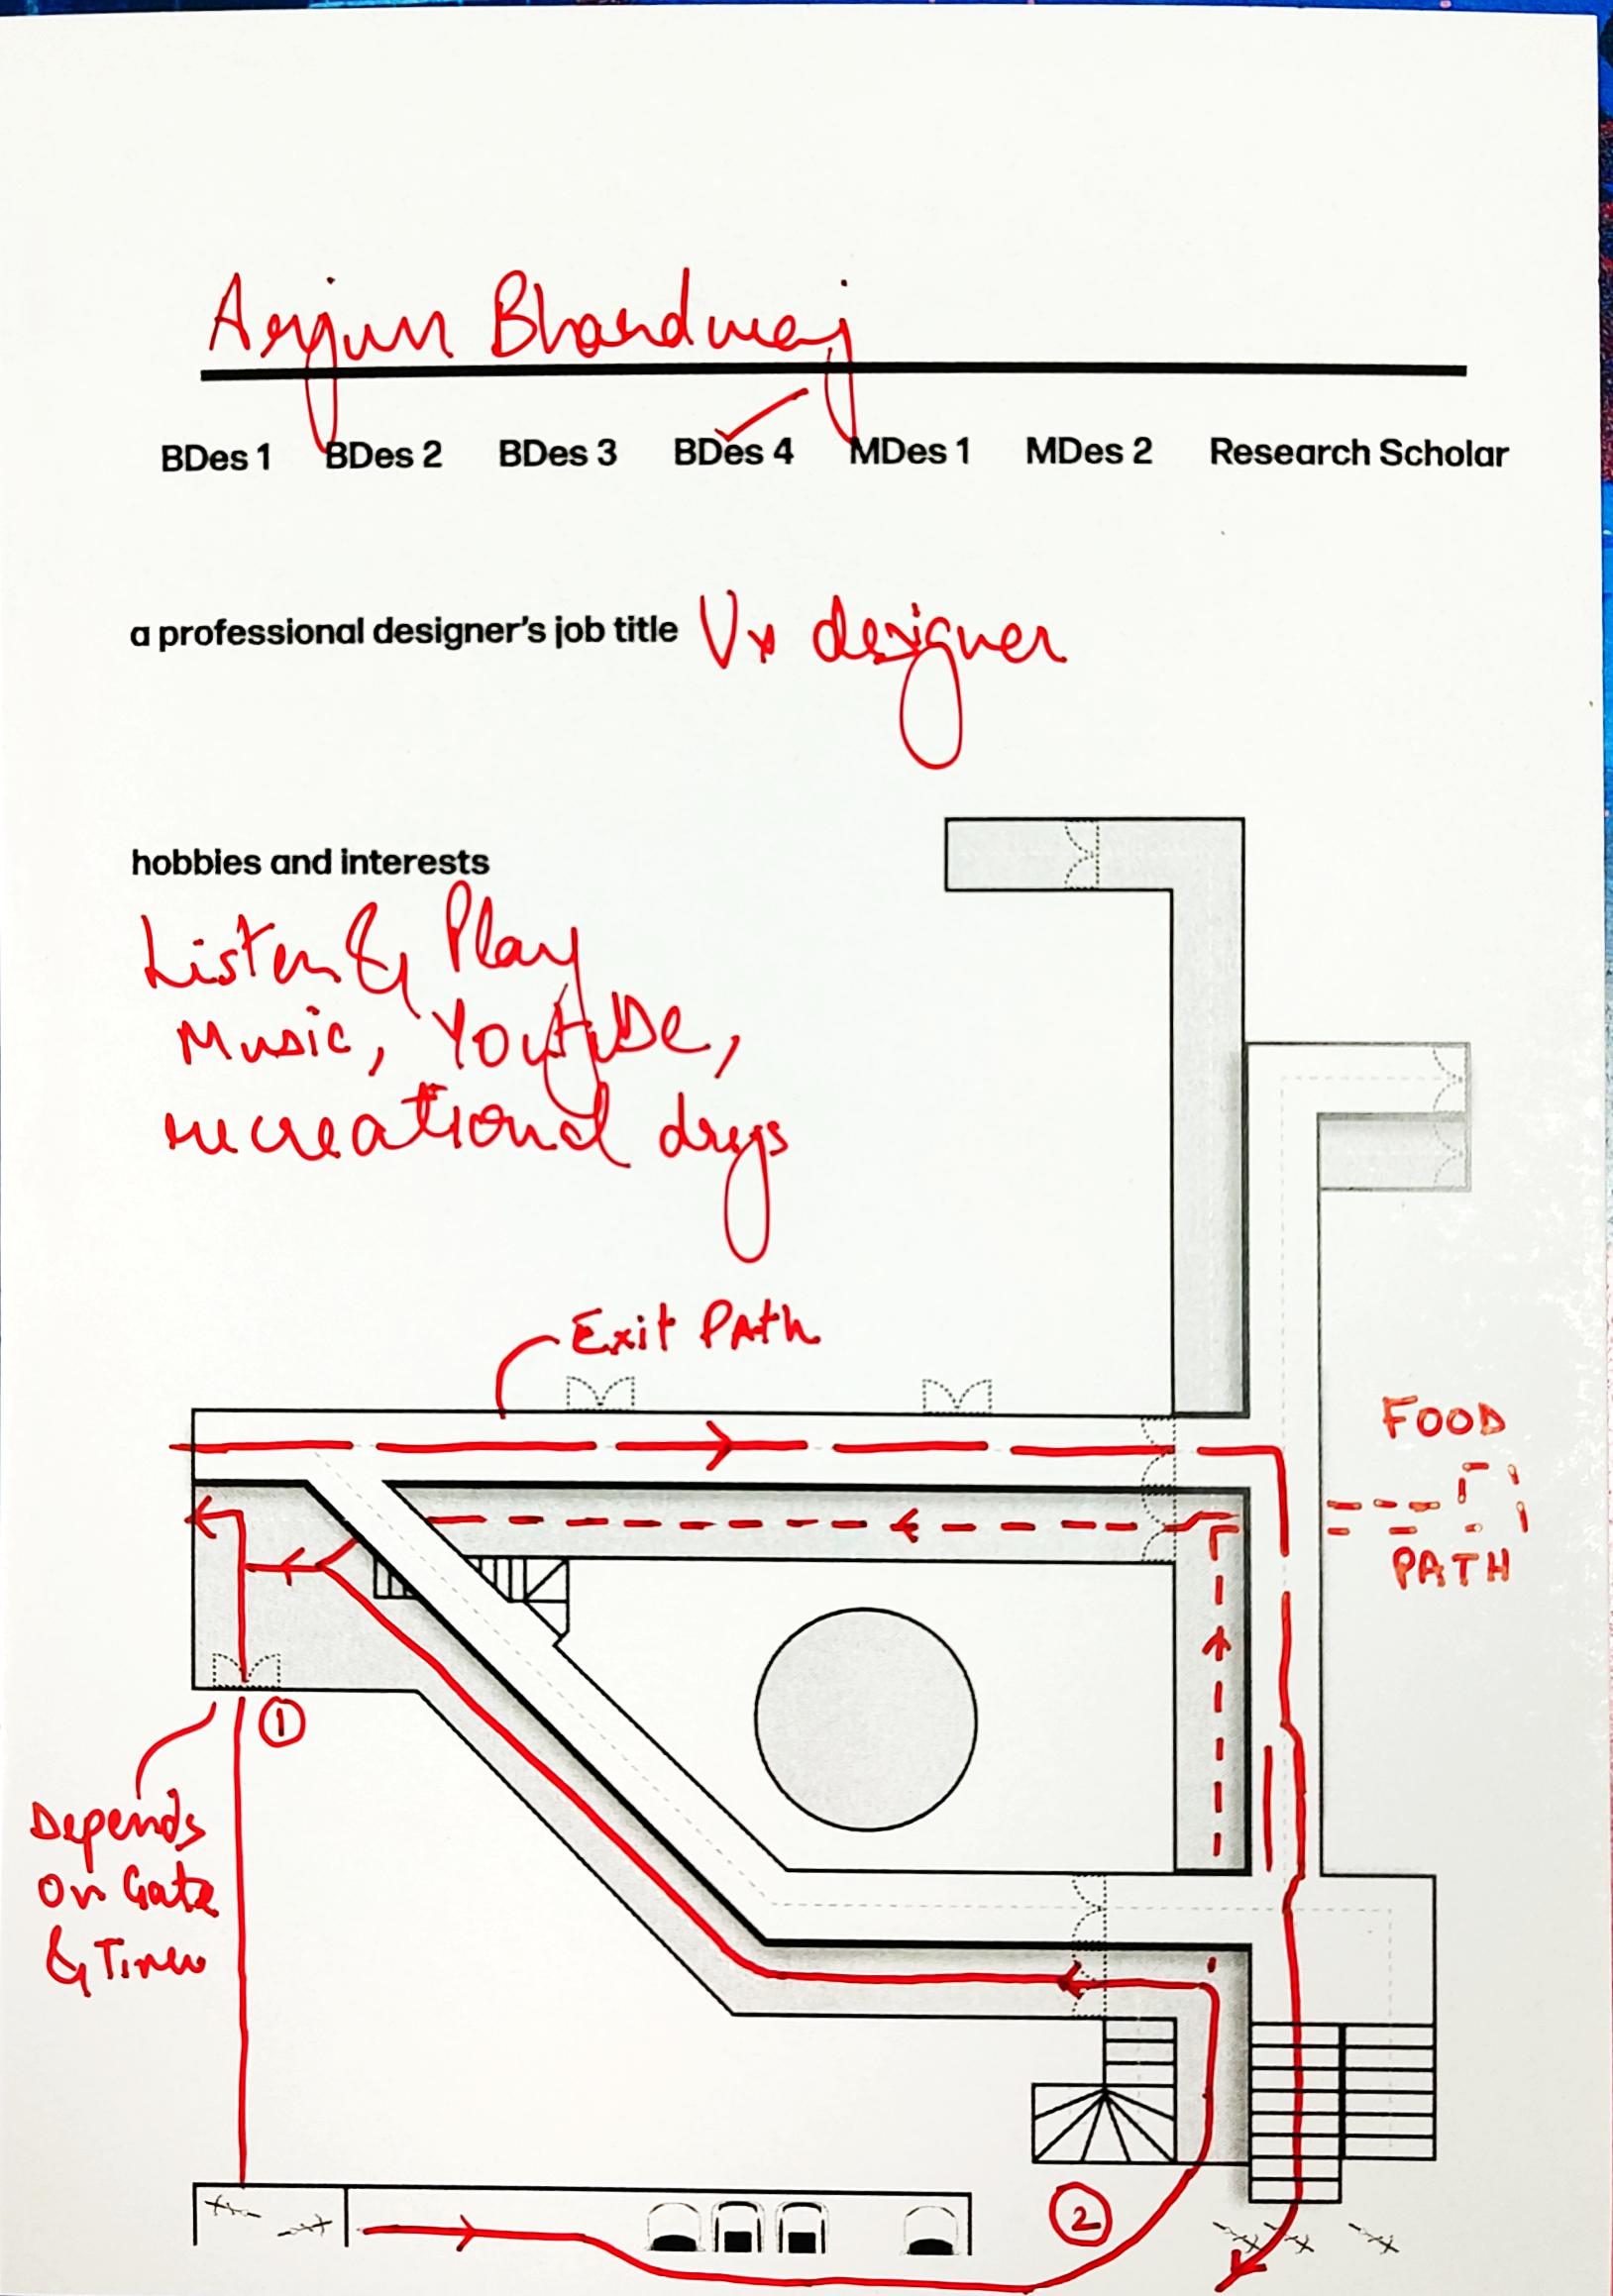 Arjun Bhardwaj
BDes 1 BDes 2 BDes 3 BDes 4 MDes 1 MDes 2 Research Scholar
a professional designer's job title Ux designer
hobbies and interests
Listen & Play
Music, Youtube,
recreational drugs
Exit Path
FOOD
PATH
1
Depends
on Gate
& Time
2